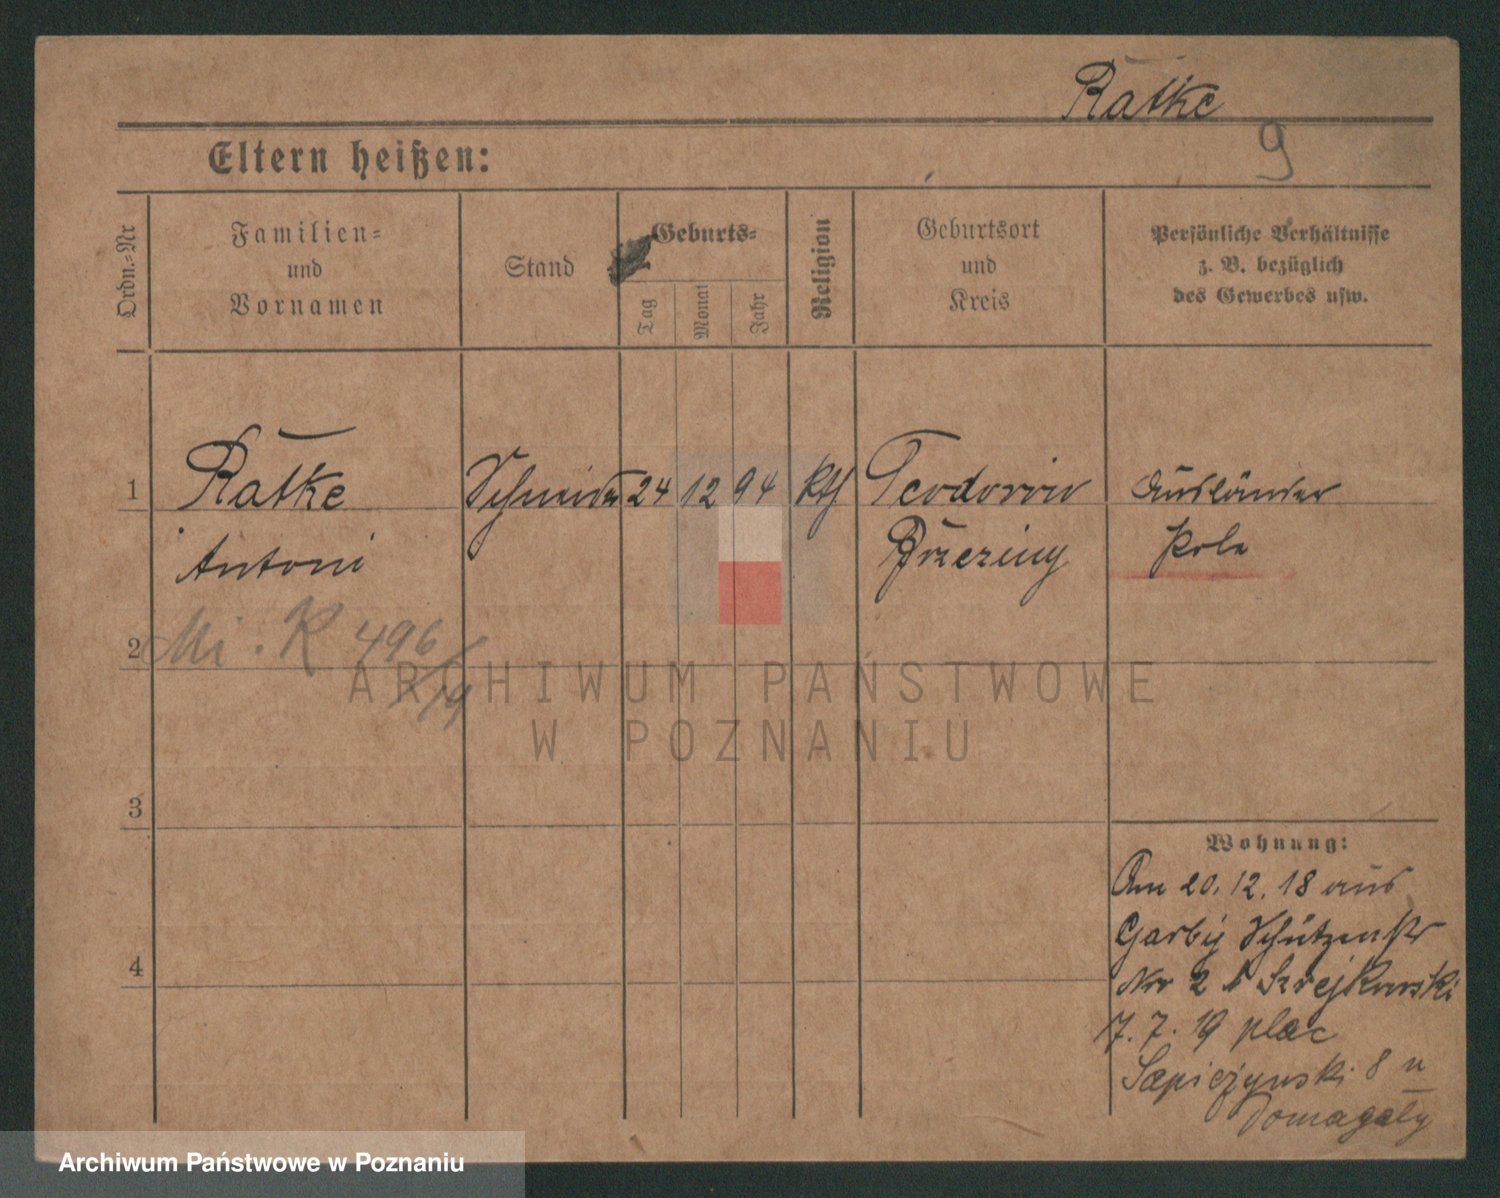 Ratke
9
Eltern heißen:
Ordn.-Nr
Familien-
und
Vornamen
Stand
Geburts-
Tag
Monat
Jahr
Religion
Geburtsort
und
Kreis
Persönliche Verhältnisse
z. B. bezüglich
des Gewerbes usw.
1 Ratke Schneider 24 12 94 kth Teodorow Ausländer
Antoni Brzeziny Pole
2 Mi. K 496/19
3
4
Wohnung:
Am 20. 12. 18 aus
Garby Schützenstr
Nro 2 Szrejkowski
7. 7. 19 plac
Sapieżynski 8 u
Domagały
ARCHIWUM PAŃSTWOWE
W POZNANIU
Archiwum Państwowe w Poznaniu